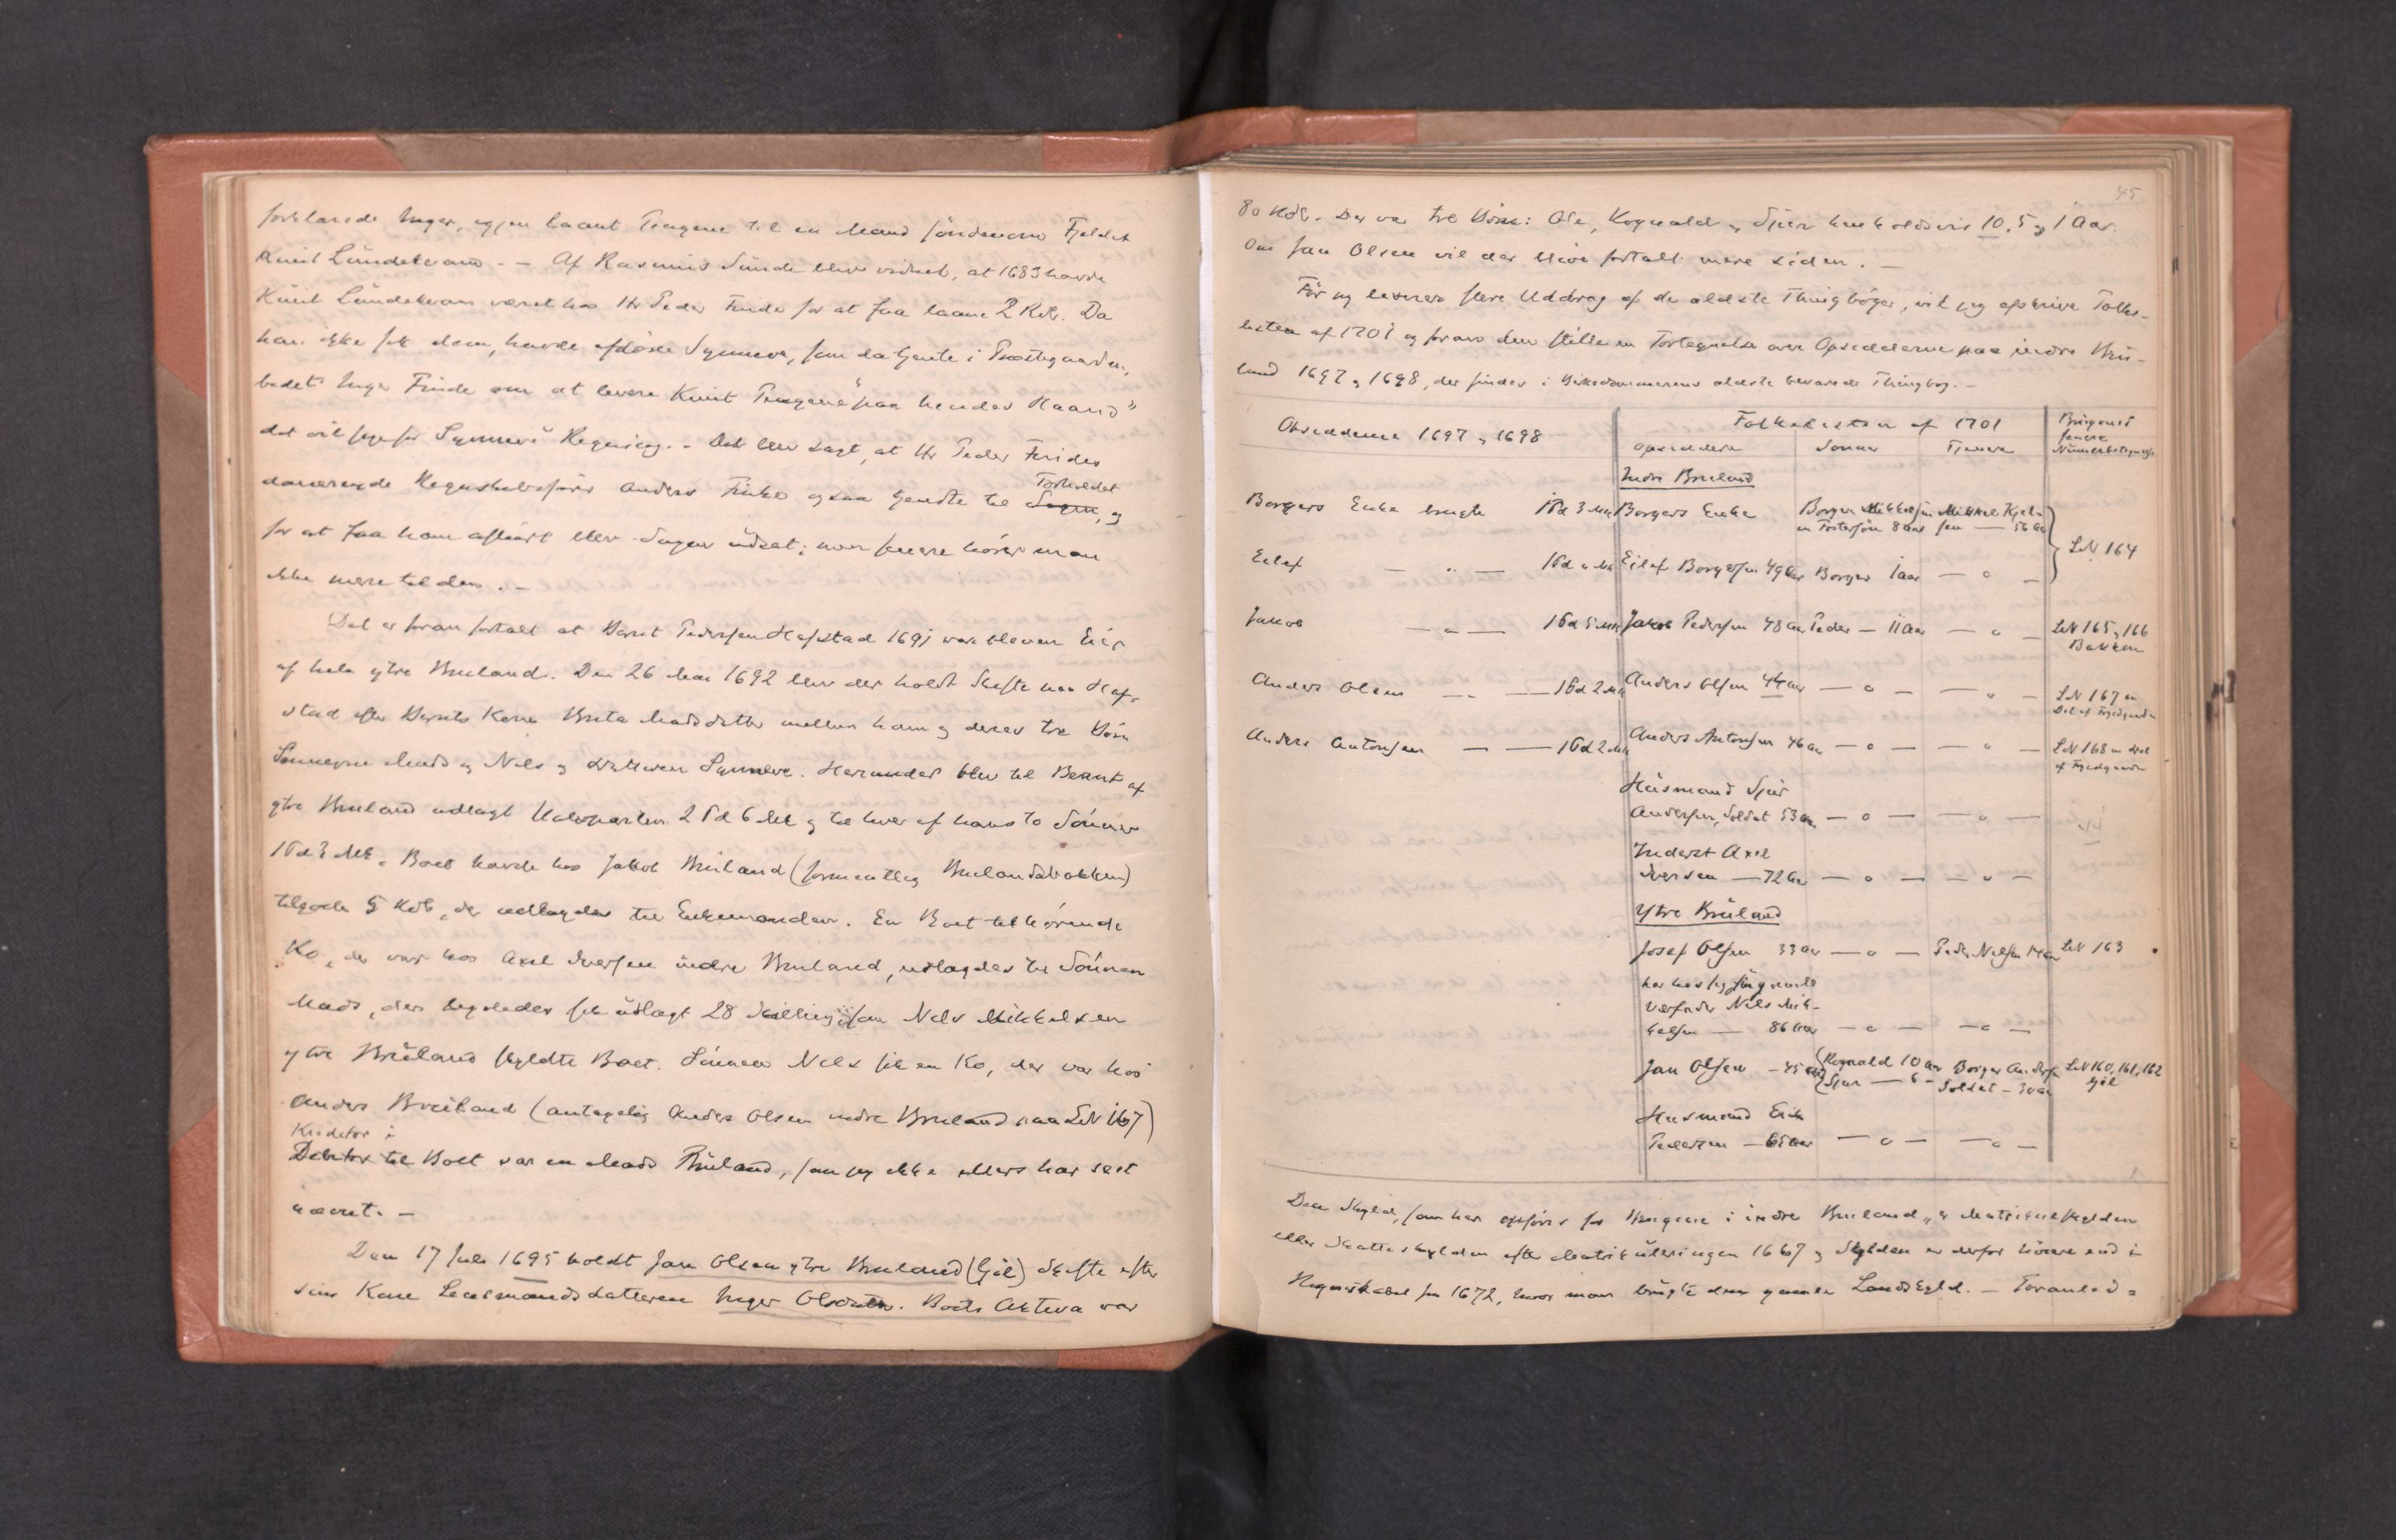 forklarede Inger, igjen laant Pengene til en Mand søndenom Fjeldet
Knut Lundekvam. — Af Rasmus Sunde blev vidnet, at 1683 havde
Knut Lundekvam været hos Hr Peder Finde for at faa laane 2 Rdlr. Da
han ikke fik dem, havde afdøde Synneve, som da tjente i Præstegaarden,
bedet Inger Finde om at levere Knut Pengene "paa hendes Haand"
det vil sige for Synneves Regning. - Det blev sagt, at Hr Peder Findes
daværende Regnskabsfører Anders Finke ogsaa kjendte til Sagen, og
Forholdet
for at faa ham afhørt blev Sagen udsat; men senere hører man
ikke mere til den. -
Det er foran fortalt at Bernt Pedersen Hafstad 1691 var bleven Eier
af hele ytre Bruland. Den 26 Mai 1692 blev der holdt Skifte paa Haf-
stad efter Bernts Kone Brita Madsdatter mellem ham og deres tre Børn
Sønnerne Mads og Nils og Datteren Synneve. Herunder blev til Bernt af
ytre Bruland udlagt Halvparten 2 Pd 6 Mk og til hver af hans to Sønner
1 Pd 3 Mk. Boet havde hos Jakob Bruland (formentlig Brulandsbakken)
tilgode 5 Rdlr, der udlagdes til Enkemanden. En Boet tilhørende
Ko, der var hos Axel Iversen indre Bruland, udlagdes til Sønnen
Mads, der ligeledes fik udlagt 28 Skilling, som Nils Mikkelsen
ytre Bruland skyldte Boet. Sønnen Nils fik en Ko, der var hos
Anders Bruland (antagelig Anders Olsen indre Bruland paa LN 167)
Kreditor i
Debitor til Boet var en Mads Bruland, som jeg ikke ellers har seet
nævnt. —
Den 17 Juli 1695 holdt Jan Olsen ytre Bruland (Gjil) Skifte efter
sin Kone Lensmandsdatteren Inger Olsdatter. Boets Aktiva var
45
80 Rdlr. Der var tre Børn: Ole, Rognald og Sjur henholdsvis 10, 5 og 1 Aar.
Om Jan Olsen vil der blive fortalt mere siden. —
Før jeg leverer flere Uddrag af de ældste Thingbøger, vil jeg afskrive Folke-
listen af 1701 og foran den stille en Fortegnelse over Opsidderne paa indre Bru-
land 1697 og 1698, der findes i Birkedommerens ældste bevarede Thingbog. -
Opsidderne 1697 og 1698
Folkelisten af 1701
Brugenes senere Nummerbetegnelse
Opsiddere Sønner Tjenere
Indre Bruland
Borgers Enke brugte 1 Pd 3 Mk Borgers Enke Borger Mikkelsen en Fostersøn 8 aar Mikkel Kjel-sen — 56 aar
LN 164
Eilef — " — 1 Pd " Mk Eilef Borgersen 49 aar Borger 1 aar — o —
Jakob — " — 1 Pd 5 Mk Jakob Pedersen 48 aar Peder — 11 aar — o — LN 165, 166 Bakken
Anders Olsen — " — 1 Pd 2 Mk Anders Olsen 44 aar — o — — " — LN 167 en Del af Fyedgaarden
Anders Antonsen — — 1 Pd 2 Mk Anders Antonsen 46 aar — o — — o — LN 168 en Del af Fyedgaarden
Husmand Sjur
Andersen, Soldat 53 aar — o — — o —
Inderst Axel
Iversen — 72 aar — o — — o —
Ytre Bruland
Josef Olsen 33 aar — o — Peder Nelsen 14 aar LN 163
har hos sig
Værfader Nils Mik-
kelsen — 86 aar — o — — o —
Jan Olsen — 45 aar Rognald 10 aar Borger Anders LN 160, 161, 162
Sjur — 6 — Soldat — 30 aar Gjil
Husmand Erik
Pedersen — 65 aar — o — — o —
Den Skyld, som her opføres for Brugene i indre Bruland, er Matrikulskylden
eller Skatteskylden efter Matrikuleringen 1667 og Skylden er derfor høiere end i
Regnskabet for 1672, hvor man brugte den gamle Landskyld. — Foranled-